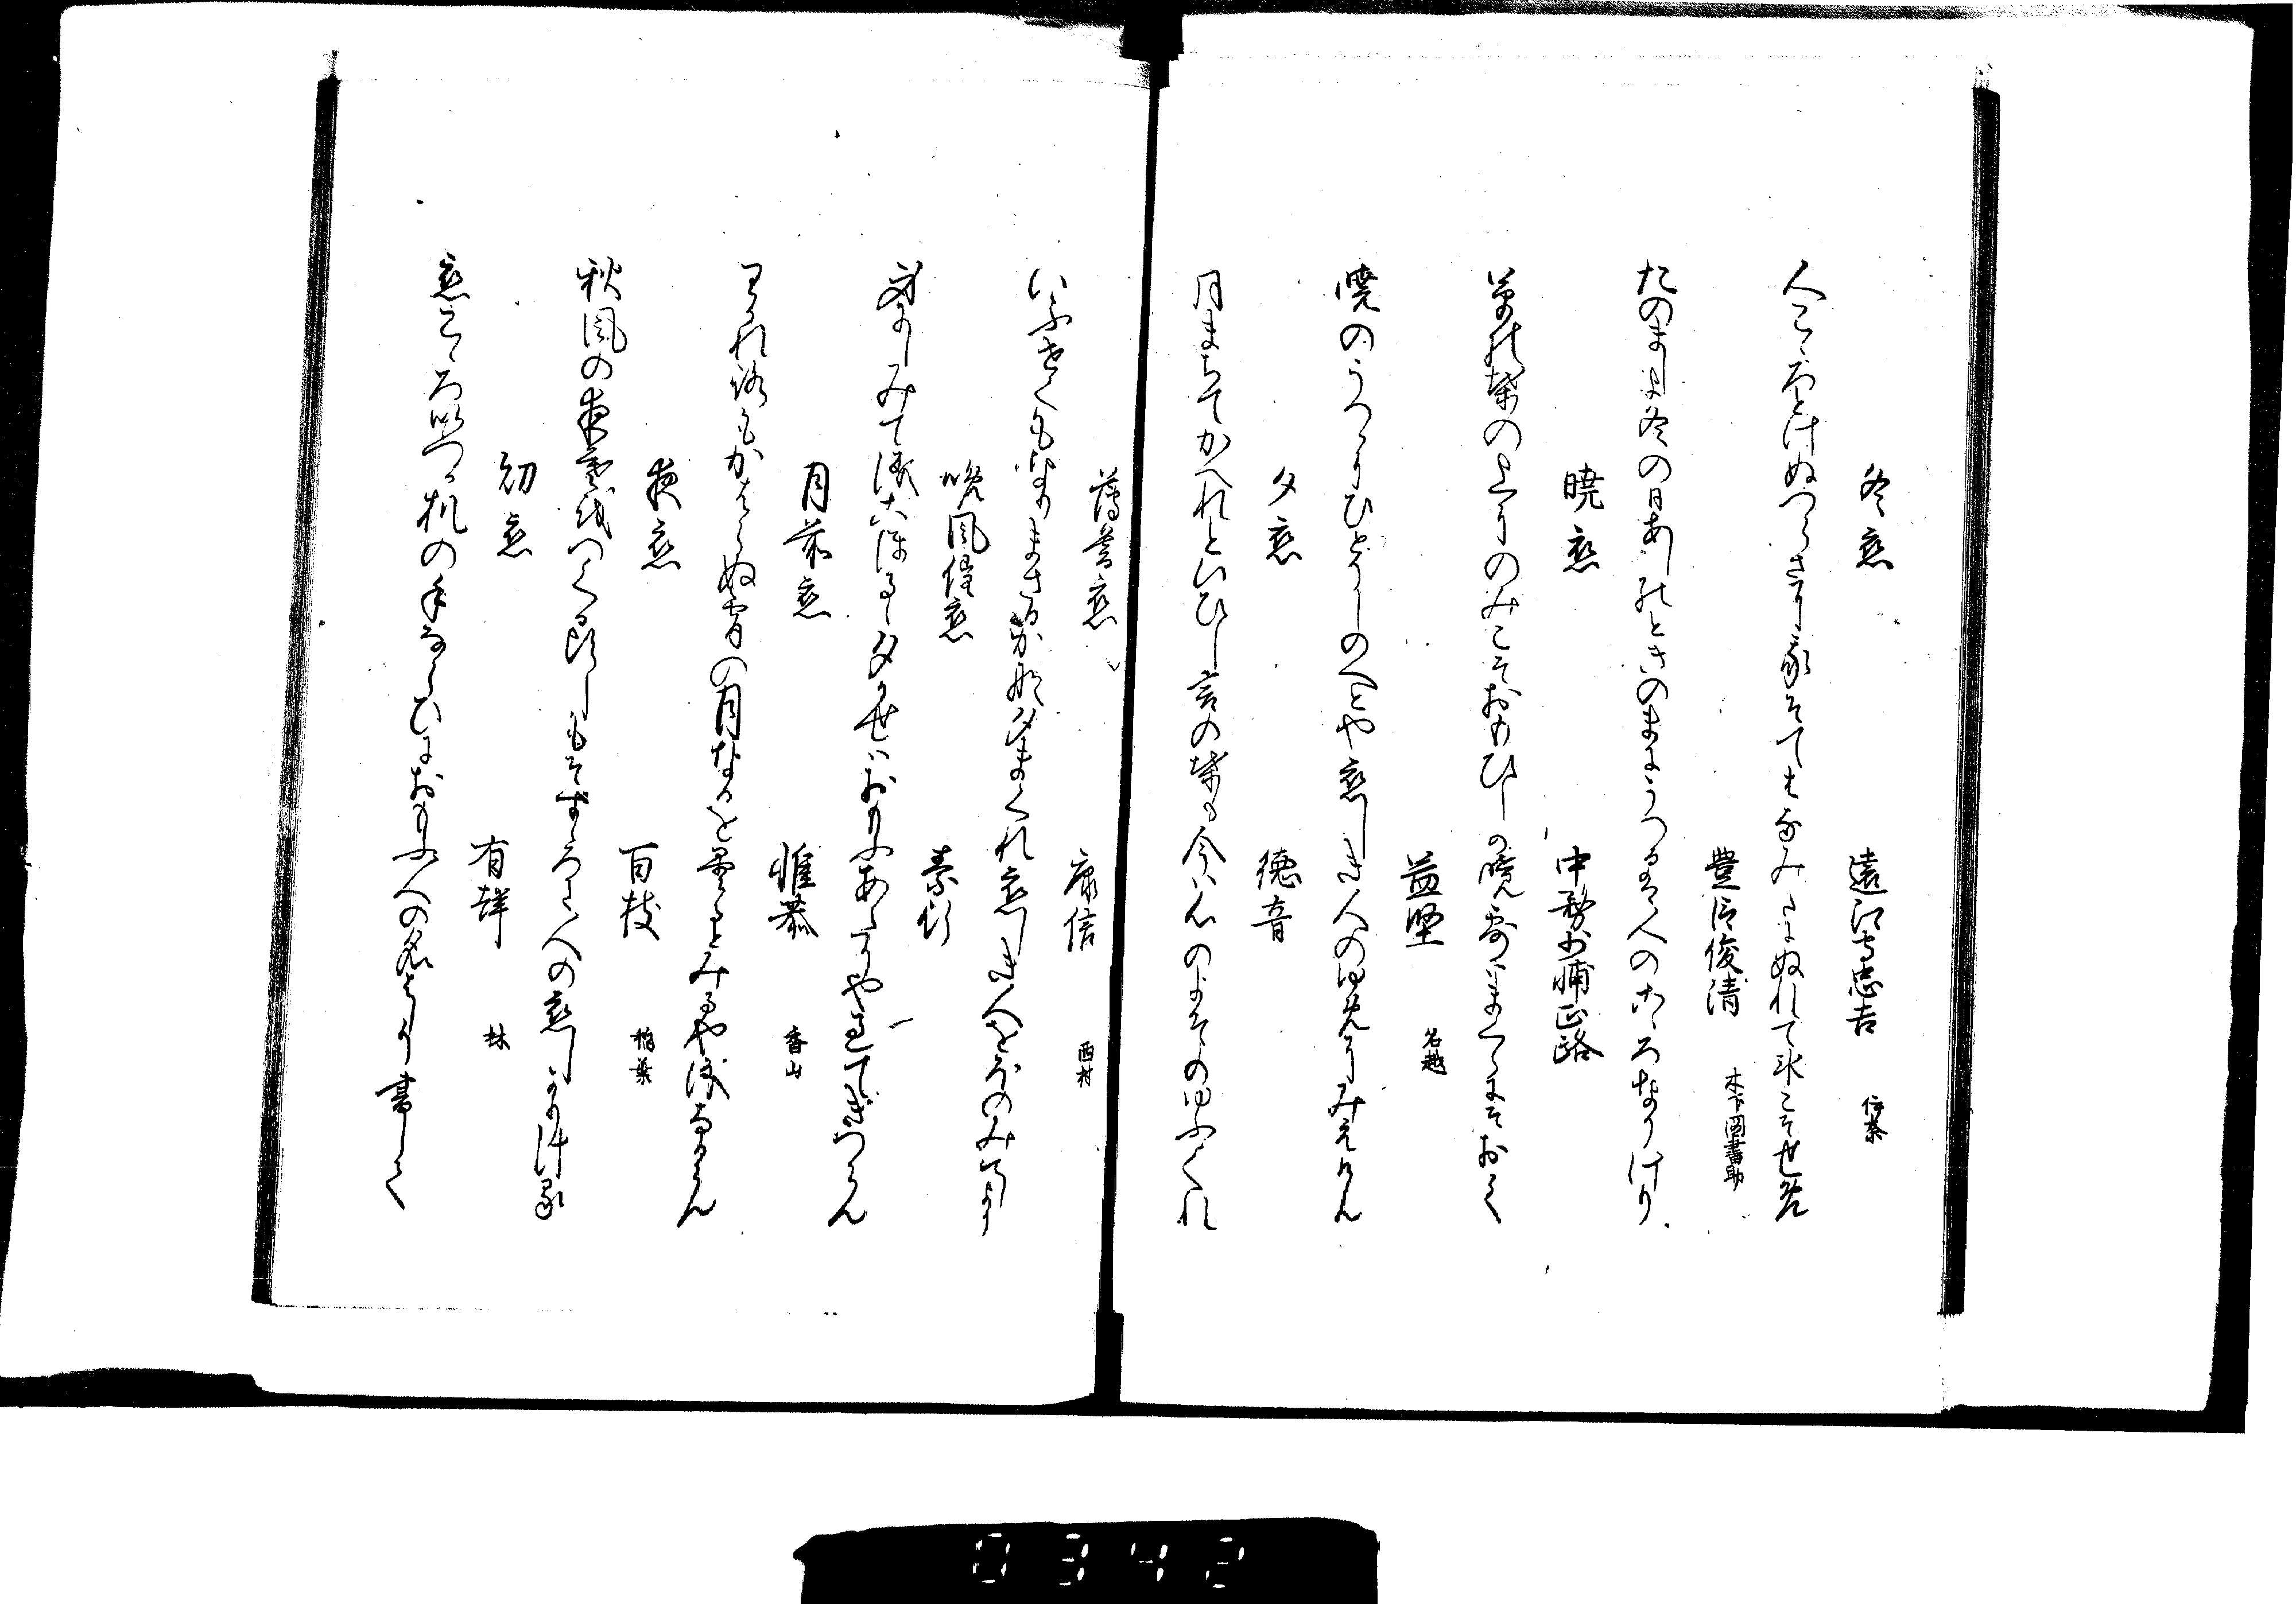 冬恋　遠江守忠告
人こゝろとけぬつらさに我そてはなみたにぬれて氷こそせね
豊臣俊清　木下図書助
たのましよ冬の日あしのときのまにうつるは人のこゝろなりけり
暁恋　中務少輔正路
草の葉の上にのみこそおもひしの暁露はまくらにそおく
益堅　名越
暁のうつゝにひとりしのへとや恋しき人のゆめにみえけん
夕恋　徳音
月まちてかへれといひし言の葉も今は心のよそのゆふくれ
薄暮恋　康信　西村
いふせくもなりまさるかな夕まくれ恋しき人をよそのみにして
晩風催恋　素行
身にしみて涙こほるゝ夕かせはおもふあたりやすきてきつらん
月前恋　惟恭　香山
わすれ路もかはらぬ宵の月なるを曇るとみるや涙なるらん
夜恋　百枝　稲葉
秋風の夜寒をつくる頃しもそすゝろに人の恋しかりける
初恋　有祥　林
恋こゝろいつゝ机の手ならひにおもふ人の名はかり書く